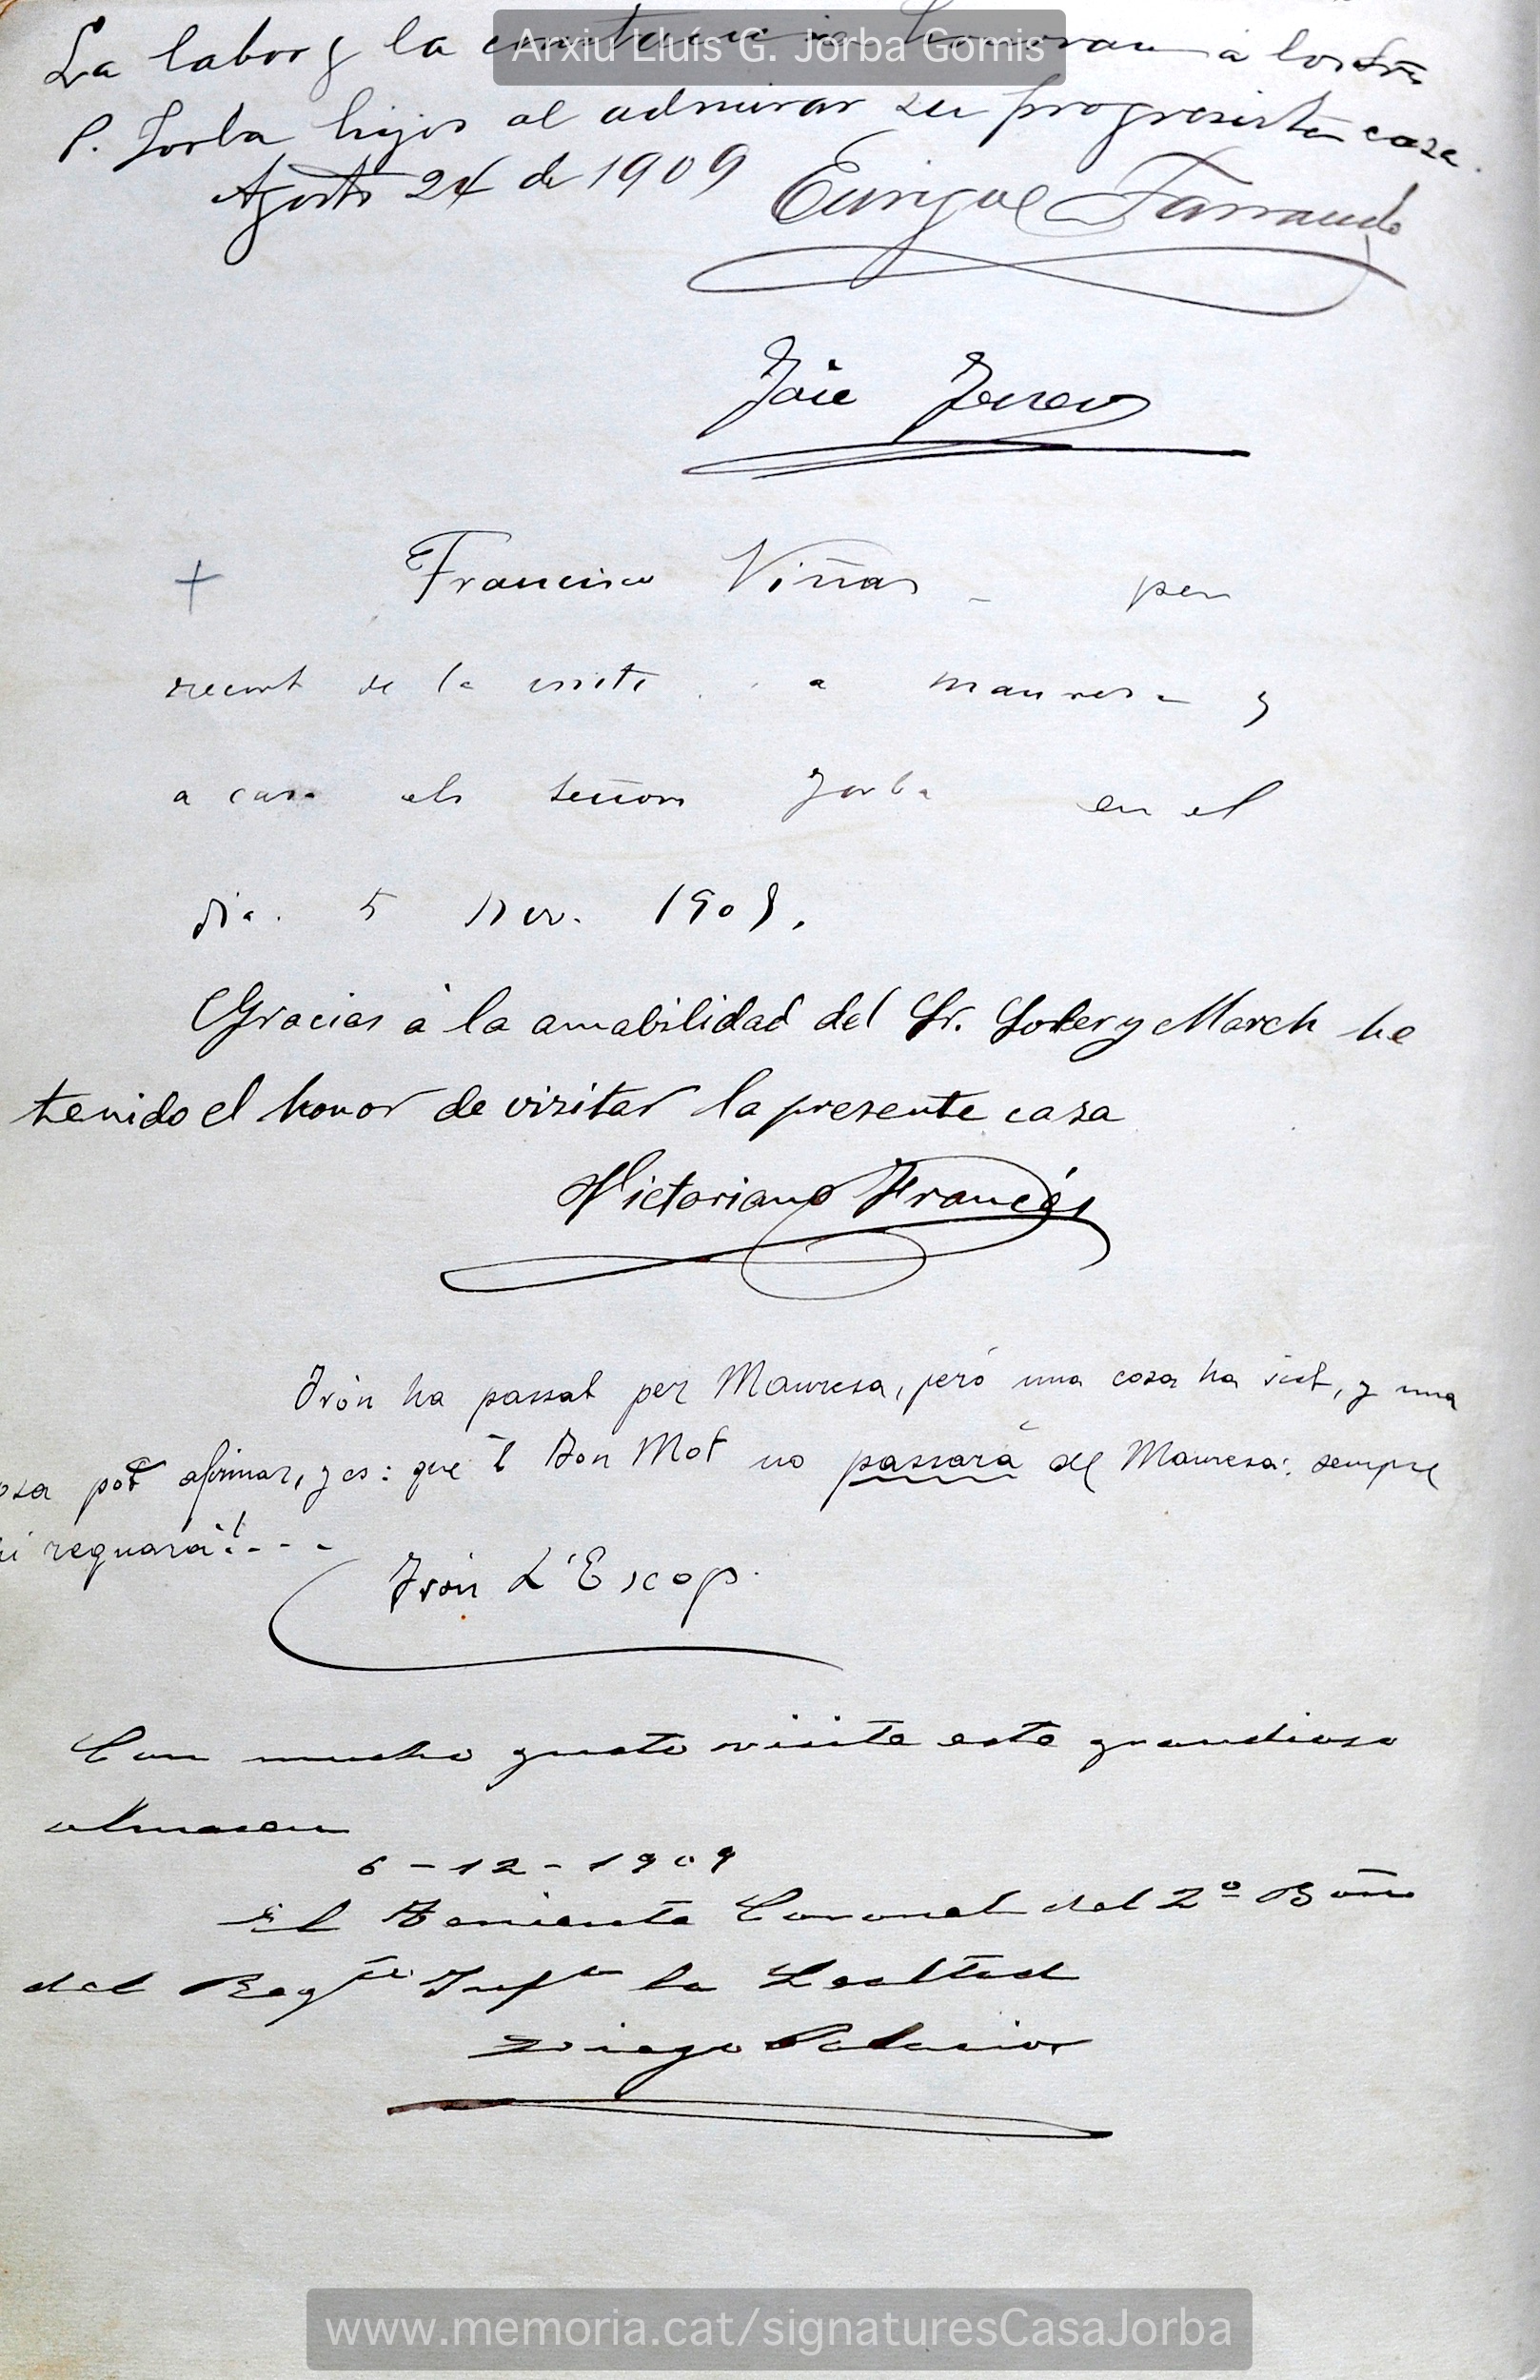 Arxiu Lluís G. Jorba Gomis
La labor y la constancia honoran á los Sres
P. Jorba hijos al admirar su progresista casa.
Agosto 24 de 1909 Enrique Farrando
Francisco Viñas - per
recort de la visita a manresa y
a casa els señors Jorba en el
dia. 5 Nov. 1909.
Gracias á la amabilidad del Sr. Soler y March he
tenido el honor de visitar la presente casa
Victoriano Francés
Ivón ha passat per Manresa, peró una cosa ha vist, y una
osa pot afirmar, y es: que 'l Bon Mot no passará de Manresa: sempre
hi regnará!...
Ivón L'Escop.
Con mucho gusto visite este grandioso
almacen
6-12-1909
El Teniente Coronel del 2º Bón
del Regto Infa la Lealtad
Diego Palacios
www.memoria.cat/signaturesCasaJorba